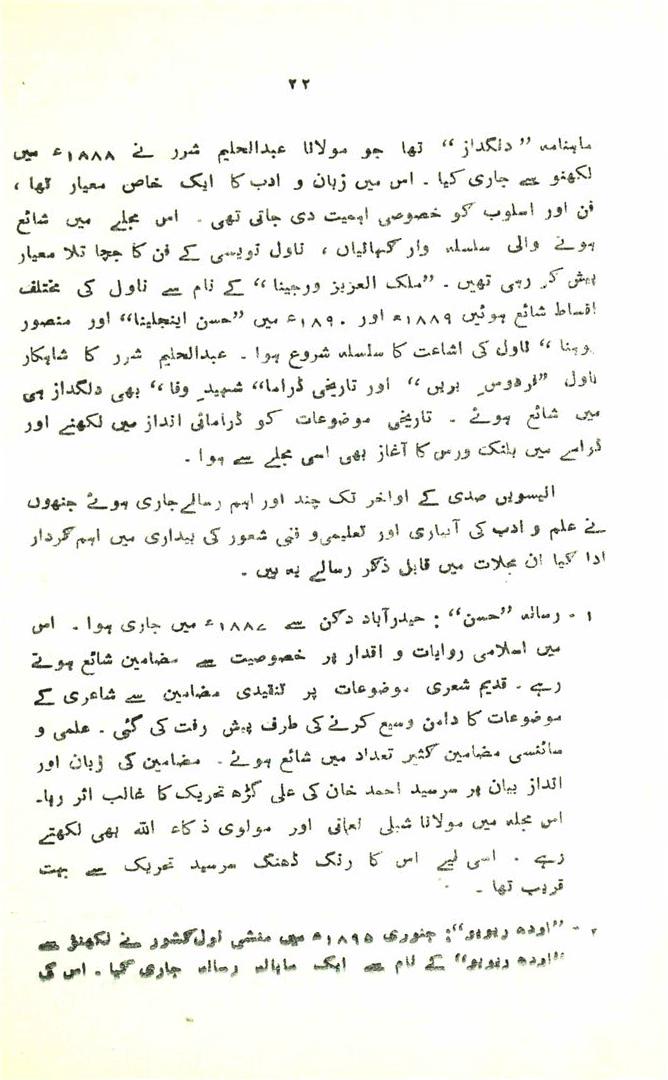 ۲۲
ماہنامہ ”دلگداز“ تھا جو مولانا عبدالحلیم شرر نے ۱۸۸۸ء میں
لکھنو سے جاری کیا ۔ اس میں زبان و ادب کا ایک خاص معیار تھا ،
فن اور اسلوب کو خصوصی اہمیت دی جاتی تھی ۔ اس مجلے میں شائع
ہونے والی سلسلہ وار کہانیاں ، ناول نویسی کے فن کا جچا تلا معیار
پیش کر رہی تھیں ۔ ”ملک العزیز ورجینا“ کے نام سے ناول کی مختلف
اقساط شائع ہوئیں ۱۸۸۹ء اور ۱۸۹۰ء میں ”حسن اینجلینا“ اور منصور
موہنا “ ناول کی اشاعت کا سلسلہ شروع ہوا ۔ عبدالحلیم شرر کا شاہکار
ناول ”فردوسِ بریں“ اور تاریخی ڈراما“ شہیدِ وفا“ بھی دلگداز ہی
میں شائع ہوئے ۔ تاریخی موضوعات کو ڈرامائی انداز میں لکھنے اور
ڈرامے میں بلنک ورس کا آغاز بھی اسی مجلے سے ہوا ۔
انیسویں صدی کے اواخر تک چند اور اہم رسالے جاری ہوئے جنھوں
نے علم و ادب کی آبیاری اور تعلیمی و فنی شعور کی بیداری میں اہم کردار
ادا کیا ان مجلات میں قابل ذکر رسالے یہ ہیں ۔
۱ ۔ رسالہ ”حسن“ : حیدرآباد دکن سے ۱۸۸۷ء میں جاری ہوا ۔ اس
میں اسلامی روایات و اقدار پر خصوصیت سے مضامین شائع ہوتے
رہے ۔ قدیم شعری موضوعات پر تنقیدی مضامین سے شاعری کے
موضوعات کا دامن وسیع کرنے کی طرف پیش رفت کی گئی ۔ علمی و
سائنسی مضامین کثیر تعداد میں شائع ہوئے ۔ مضامین کی زبان اور
انداز بیان پر سرسید احمد خان کی علی گڑھ تحریک کا غالب اثر رہا۔
اس مجلہ میں مولانا شبلی نعمانی اور مولوی ذکاء اللہ بھی لکھتے
رہے ۔ اسی لیے اس کا رنگ ڈھنگ سرسید تحریک سے بہت
قریب تھا ۔
۲ ۔ ”اودھ ریویو“: جنوری ۱۸۹۵ء میں منشی نول کشور نے لکھنؤ سے
”اودھ ریویو“ کے نام سے ایک ماہانہ رسالہ جاری کیا ۔ اس کی